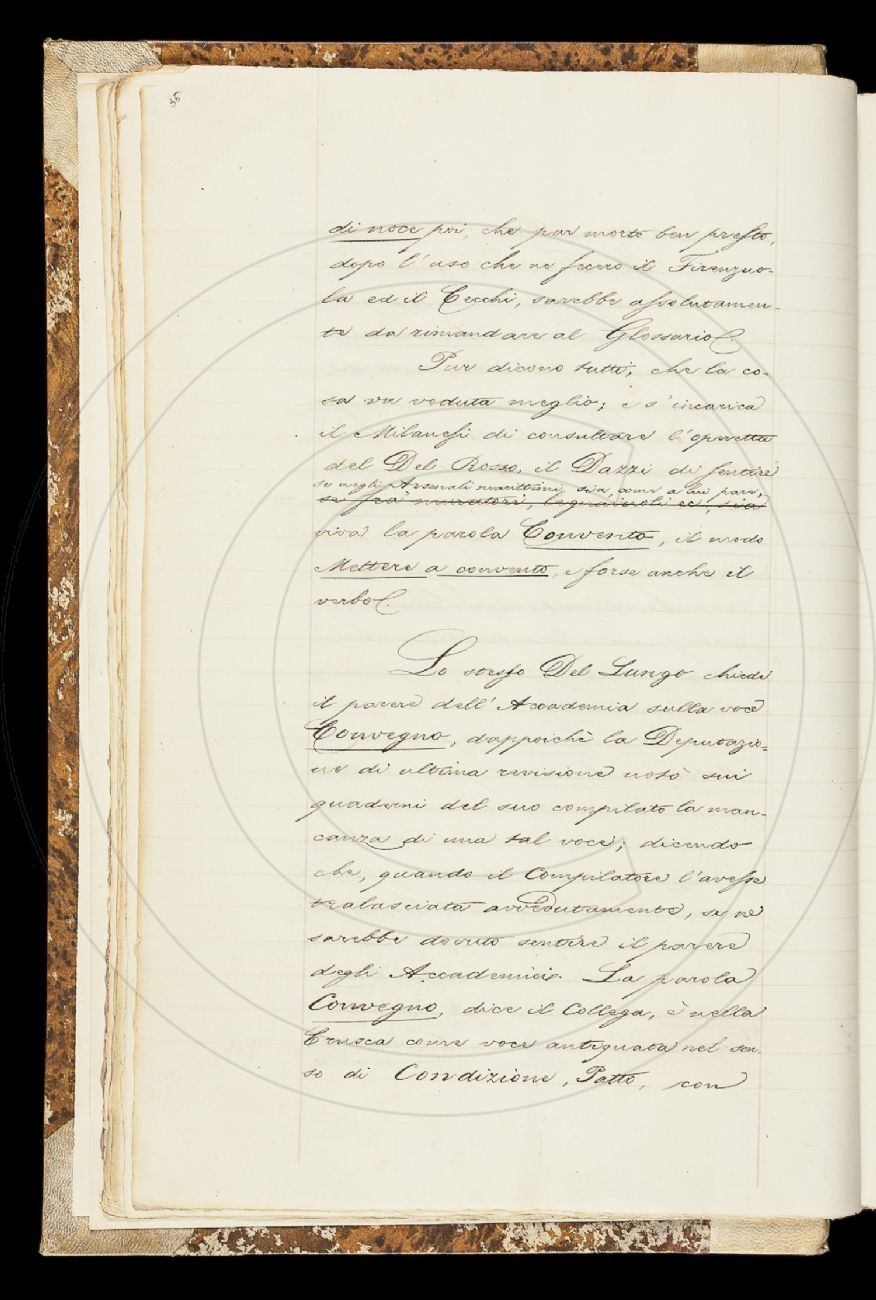 35
di noce poi, che par morto ben presto,
dopo l'uso che ne fecero il Firenzuo-
la ed il Cecchi, sarebbe assolutamen-
te da rimandare al Glossario.
Pur dicono tutti, che la co-
sa va veduta meglio; e s'incarica
il Milanesi di consultare l'operetta
del Del Rosso, il Dazzi di sentire
se negli Arsenali marittimi sia, come a lui pare,
se fra muratori, legnaiuoli ec, sia
viva la parola Convento, il modo
Mettere a convento, e forse anche il
verbo.
Lo stesso Del Lungo chiede
il parere dell'Accademia sulla voce
Convegno, dappoichè la Deputazio-
ne di ultima revisione notò sui
quaderni del suo compilato la man-
canza di una tal voce; dicendo
che, quando il Compilatore l'avesse
tralasciata avvedutamente, se ne
sarebbe dovuto sentire il parere
degli Accademici. La parola
Convegno, dice il Collega, è nella
Crusca come voce antiquata nel sen-
so di Condizione, Patto, con